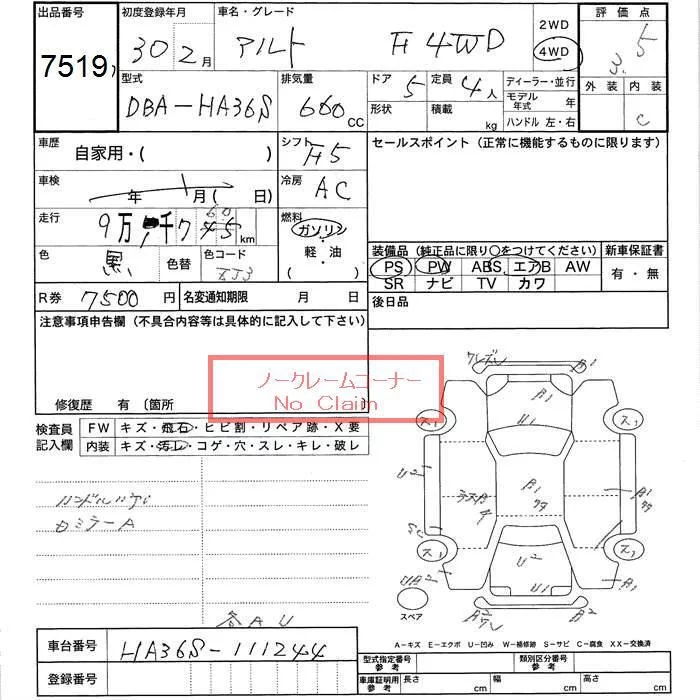 出品番号 初度登録年月 車名・グレード 2WD 評価点
7519 30 2月 アルト F 4WD 4WD 5
外装 内装
3. C
型式 排気量 ドア 定員 ディーラー・並行
DBA-HA36S 660 CC 5 4人 モデル年式 年
形状 積載 kg ハンドル 左・右
車歴 自家用・( ) シフト F5 セールスポイント (正常に機能するものに限ります)
車検 年 月( 日) 冷房 AC
走行 9万 千7 km 燃料 ガソリン・軽・油・
色 黒 色替 色コード ZJ3
装備品 (純正品に限り○をつけてください) 新車保証書
PS PW ABS エアB AW 有・無
SR ナビ TV カワ
R券 7500円 名変通知期限 月 日 後日品
注意事項申告欄 (不具合内容等は具体的に記入して下さい)
ノークレームコーナー
No Claim
修復歴 有 〔箇所
検査員記入欄 FW キズ・飛石・ヒビ割・リペア跡・X要
内装 キズ・汚レ・コゲ・穴・スレ・キレ・破レ
ハンドルハゲ
各AU
A1 U1 ス1 ス1
U2 A1 A1
ス1 U2 ス1
U1 A1
スペア
A-キズ E-エクボ U-凹み W-補修跡 S-サビ C-腐食 XX-交換済
車台番号 HA36S-111244 型式指定番号 参考 類別区分番号 参考
登録番号 車庫証明用 参考 長さ cm 幅 cm 高さ cm